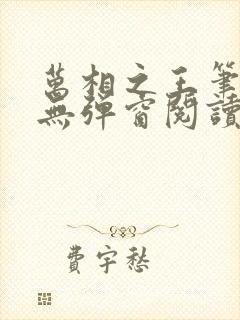 萬相之王筆
無彈窗閱讀
費宇愁